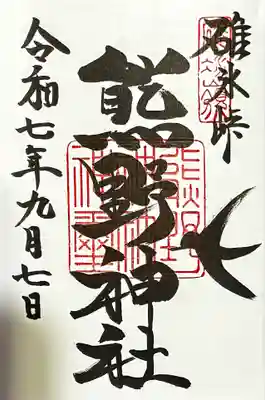 碓氷峠
熊野神社
令和七年九月七日